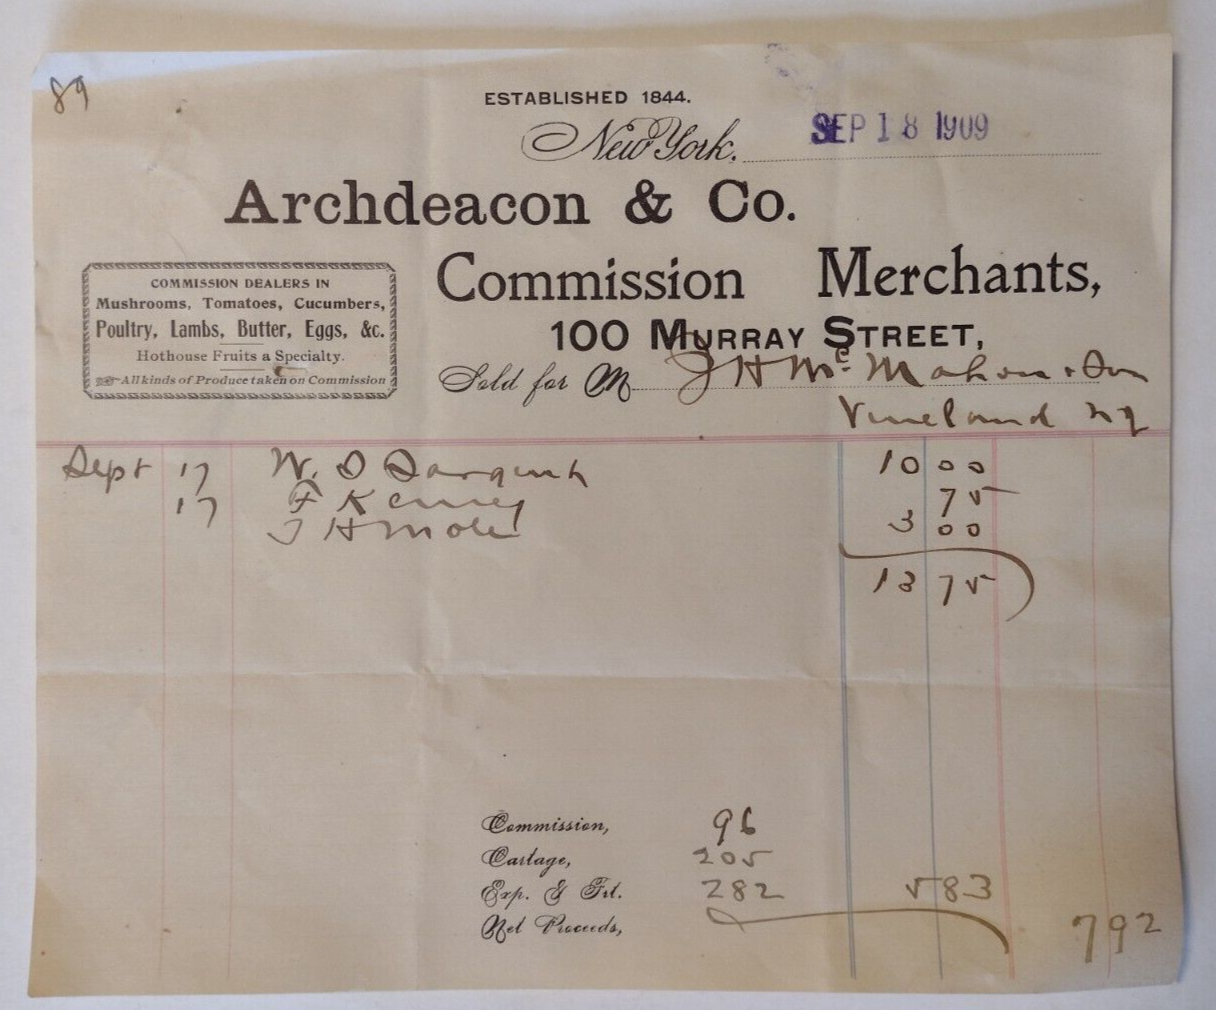 89
ESTABLISHED 1844.
New York. SEP 18 1909
Archdeacon & Co.
Commission Merchants,
COMMISSION DEALERS IN
Mushrooms, Tomatoes, Cucumbers,
Poultry, Lambs, Butter, Eggs, &c.
Hothouse Fruits a Specialty.
All kinds of Produce taken on Commission
100 MURRAY STREET,
Sold for M J H Mc Mahon & Son
Vineland NJ
Sept 17 W. D 10 00
17 F Kenney 75
J H 3 00
13 75
Commission, 96
Cartage, 205
Exp. & Frt. 282 583
Net Proceeds, 792